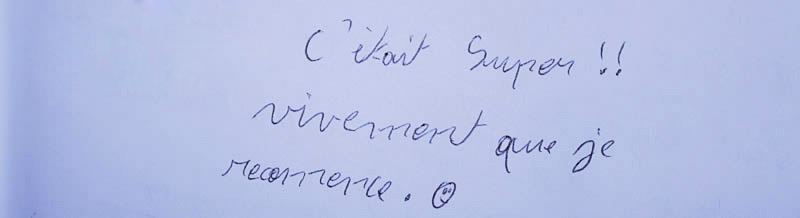 C'était Super !!
vivement que je
recommence. ☺